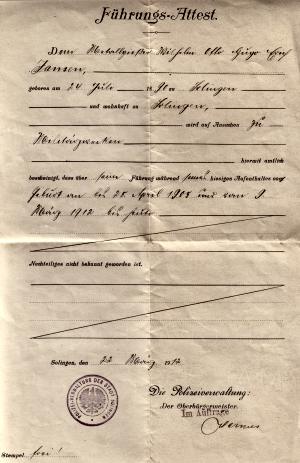 Führungs-Attest.
Dem Metallgießer Wilhelm Otto Hugo Ernst
Jansen,
geboren am 24 Juli 1890 in Solingen
und wohnhaft in Solingen,
wird auf Ansuchen zu
Militärzwecken
hiermit amtlich
bescheinigt, dass über seine Führung während seines hiesigen Aufenthaltes von
Geburt an bis 25. April 1908 und vom 9.
März 1912 bis heute
Nachteiliges nicht bekannt geworden ist.
Solingen, den 22 März 1912
Die Polizeiverwaltung:
Der Oberbürgermeister.
Im Auftrage
Stempel frei!